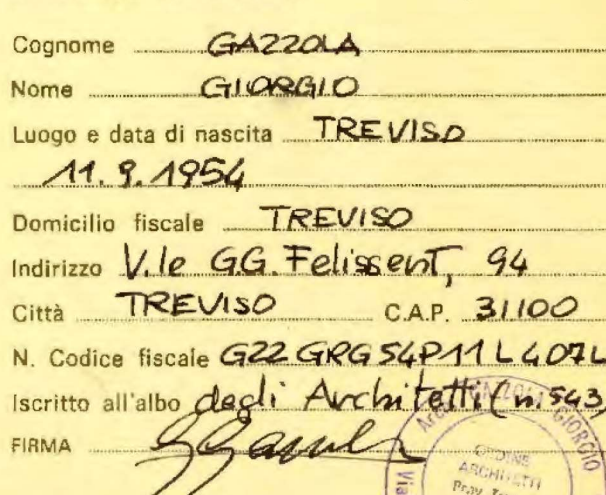 Cognome GAZZOLA
Nome GIORGIO
Luogo e data di nascita TREVISO
11.9.1954
Domicilio fiscale TREVISO
Indirizzo V.le GG. Felissent, 94
Città TREVISO C.A.P. 31100
N. Codice fiscale GZZ GRG 54P11 L407L
Iscritto all'albo degli Architetti (n.543)
FIRMA
GIORGIO
ORDINE
ARCHITETTI
Prov.